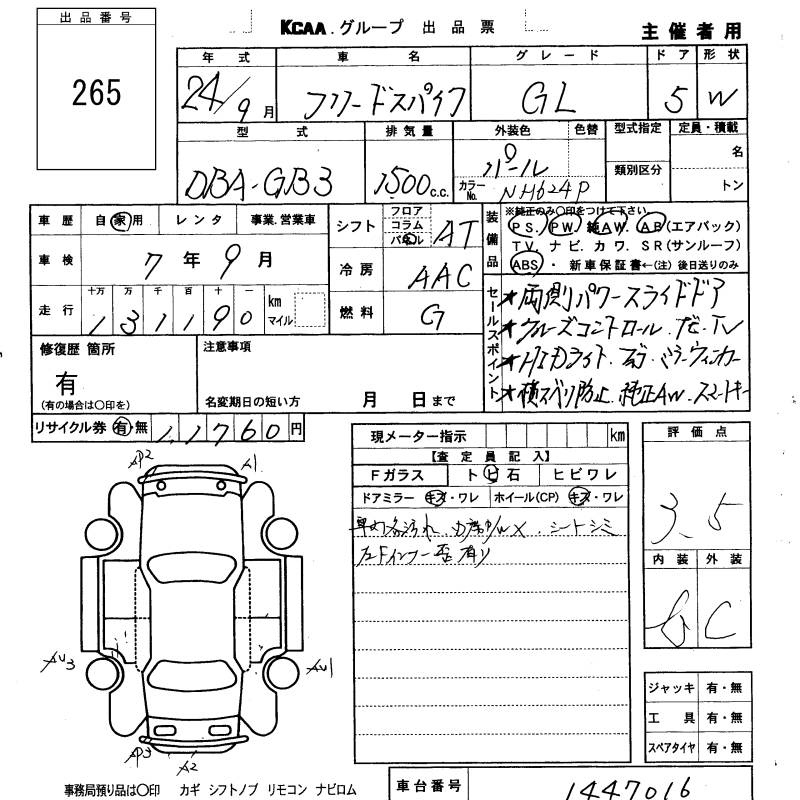 出品番号
265
KCAA.グループ 出品票
主催者用
年式 車名 グレード ドア 形状
24/9月 フリードスパイク GL 5 W
型式 排気量 外装色 色替 型式指定 定員・積載
DBA-GB3 1500c.c. パール
カラーNo. NH624P
類別区分 名
トン
車歴 自家用 レンタ 事業.営業車
車検 7年9月
走行 十万 万 千 百 十 一 km マイル
131190
シフト フロア コラム パネル AT
冷房 AAC
燃料 G
装備品 ※純正のみ○印をつけて下さい
PS. PW. 純AW. AB(エアバック)
TV. ナビ. カワ. SR(サンルーフ)
ABS・新車保証書←(注)後日送りのみ
セールスポイント
★両側パワースライドドア
★クルーズコントロール.ナビ.TV
★HIDライト.フォグ.ミラーウィンカー
★横スベリ防止.純正AW.スマートキー
修復歴 箇所
有
(有の場合は○印を)
注意事項
名変期日の短い方 月 日まで
リサイクル券 有 無 11760円
現メーター指示 km
【査定員記入】
Fガラス トビ石 ヒビワレ
ドアミラー キズ・ワレ ホイール(CP) キズ・ワレ
シートシミ
評価点
3.5
内装 外装
C
AP2 A1
AU3 AU1
AP3 A2
ジャッキ 有・無
工具 有・無
スペアタイヤ 有・無
事務局預り品は○印 カギ シフトノブ リモコン ナビロム
車台番号 1447016